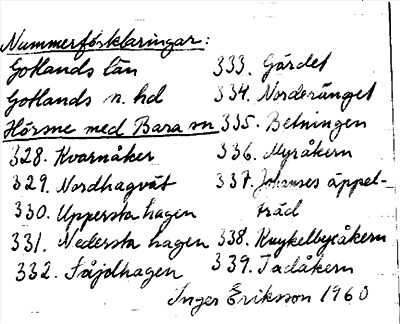 Nummerförklaringar:
Gotlands län
Gotlands n. hd
Hörsne med Bara sn
328. Kvarnåker
329. Nordhagvät
330. Uppersta hagen
331. Nedersta hagen
332. Fåjdhagen
333. Gärdet
334. Norderänget
335. Betningen
336. Myråkern
337. Johanses äppel-
träd
338. Knykelbyråkern
339. Tadåkern
Inger Eriksson 1960